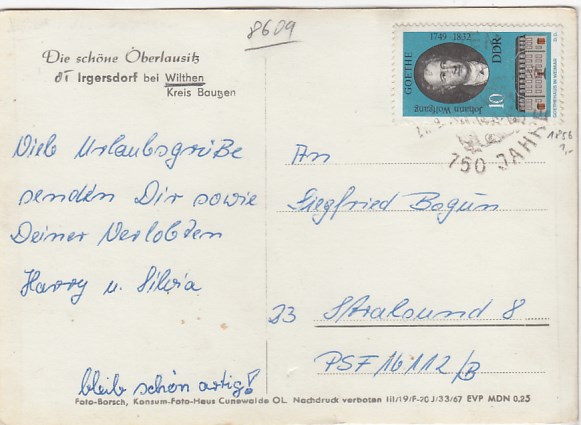 8609
Die schöne Oberlausitz
OT Irgersdorf bei Wilthen
Kreis Bautzen
Viele Urlaubsgrüße
senden Dir sowie
Deiner Verlobten
Harry u. Silvia
bleib schön artig!
GOETHE
1749 1832
Johann Wolfgang
10
DDR
GOETHEHAUS IN WEIMAR
750 JAHRE
1856
1,-
An
Siegfried Bogun
23 Stralsund 8
PSF 16112/B
Foto-Borsch, Konsum-Foto-Haus Cunewalde OL. Nachdruck verboten III/19/F-20 J/33/67 EVP MDN 0,25